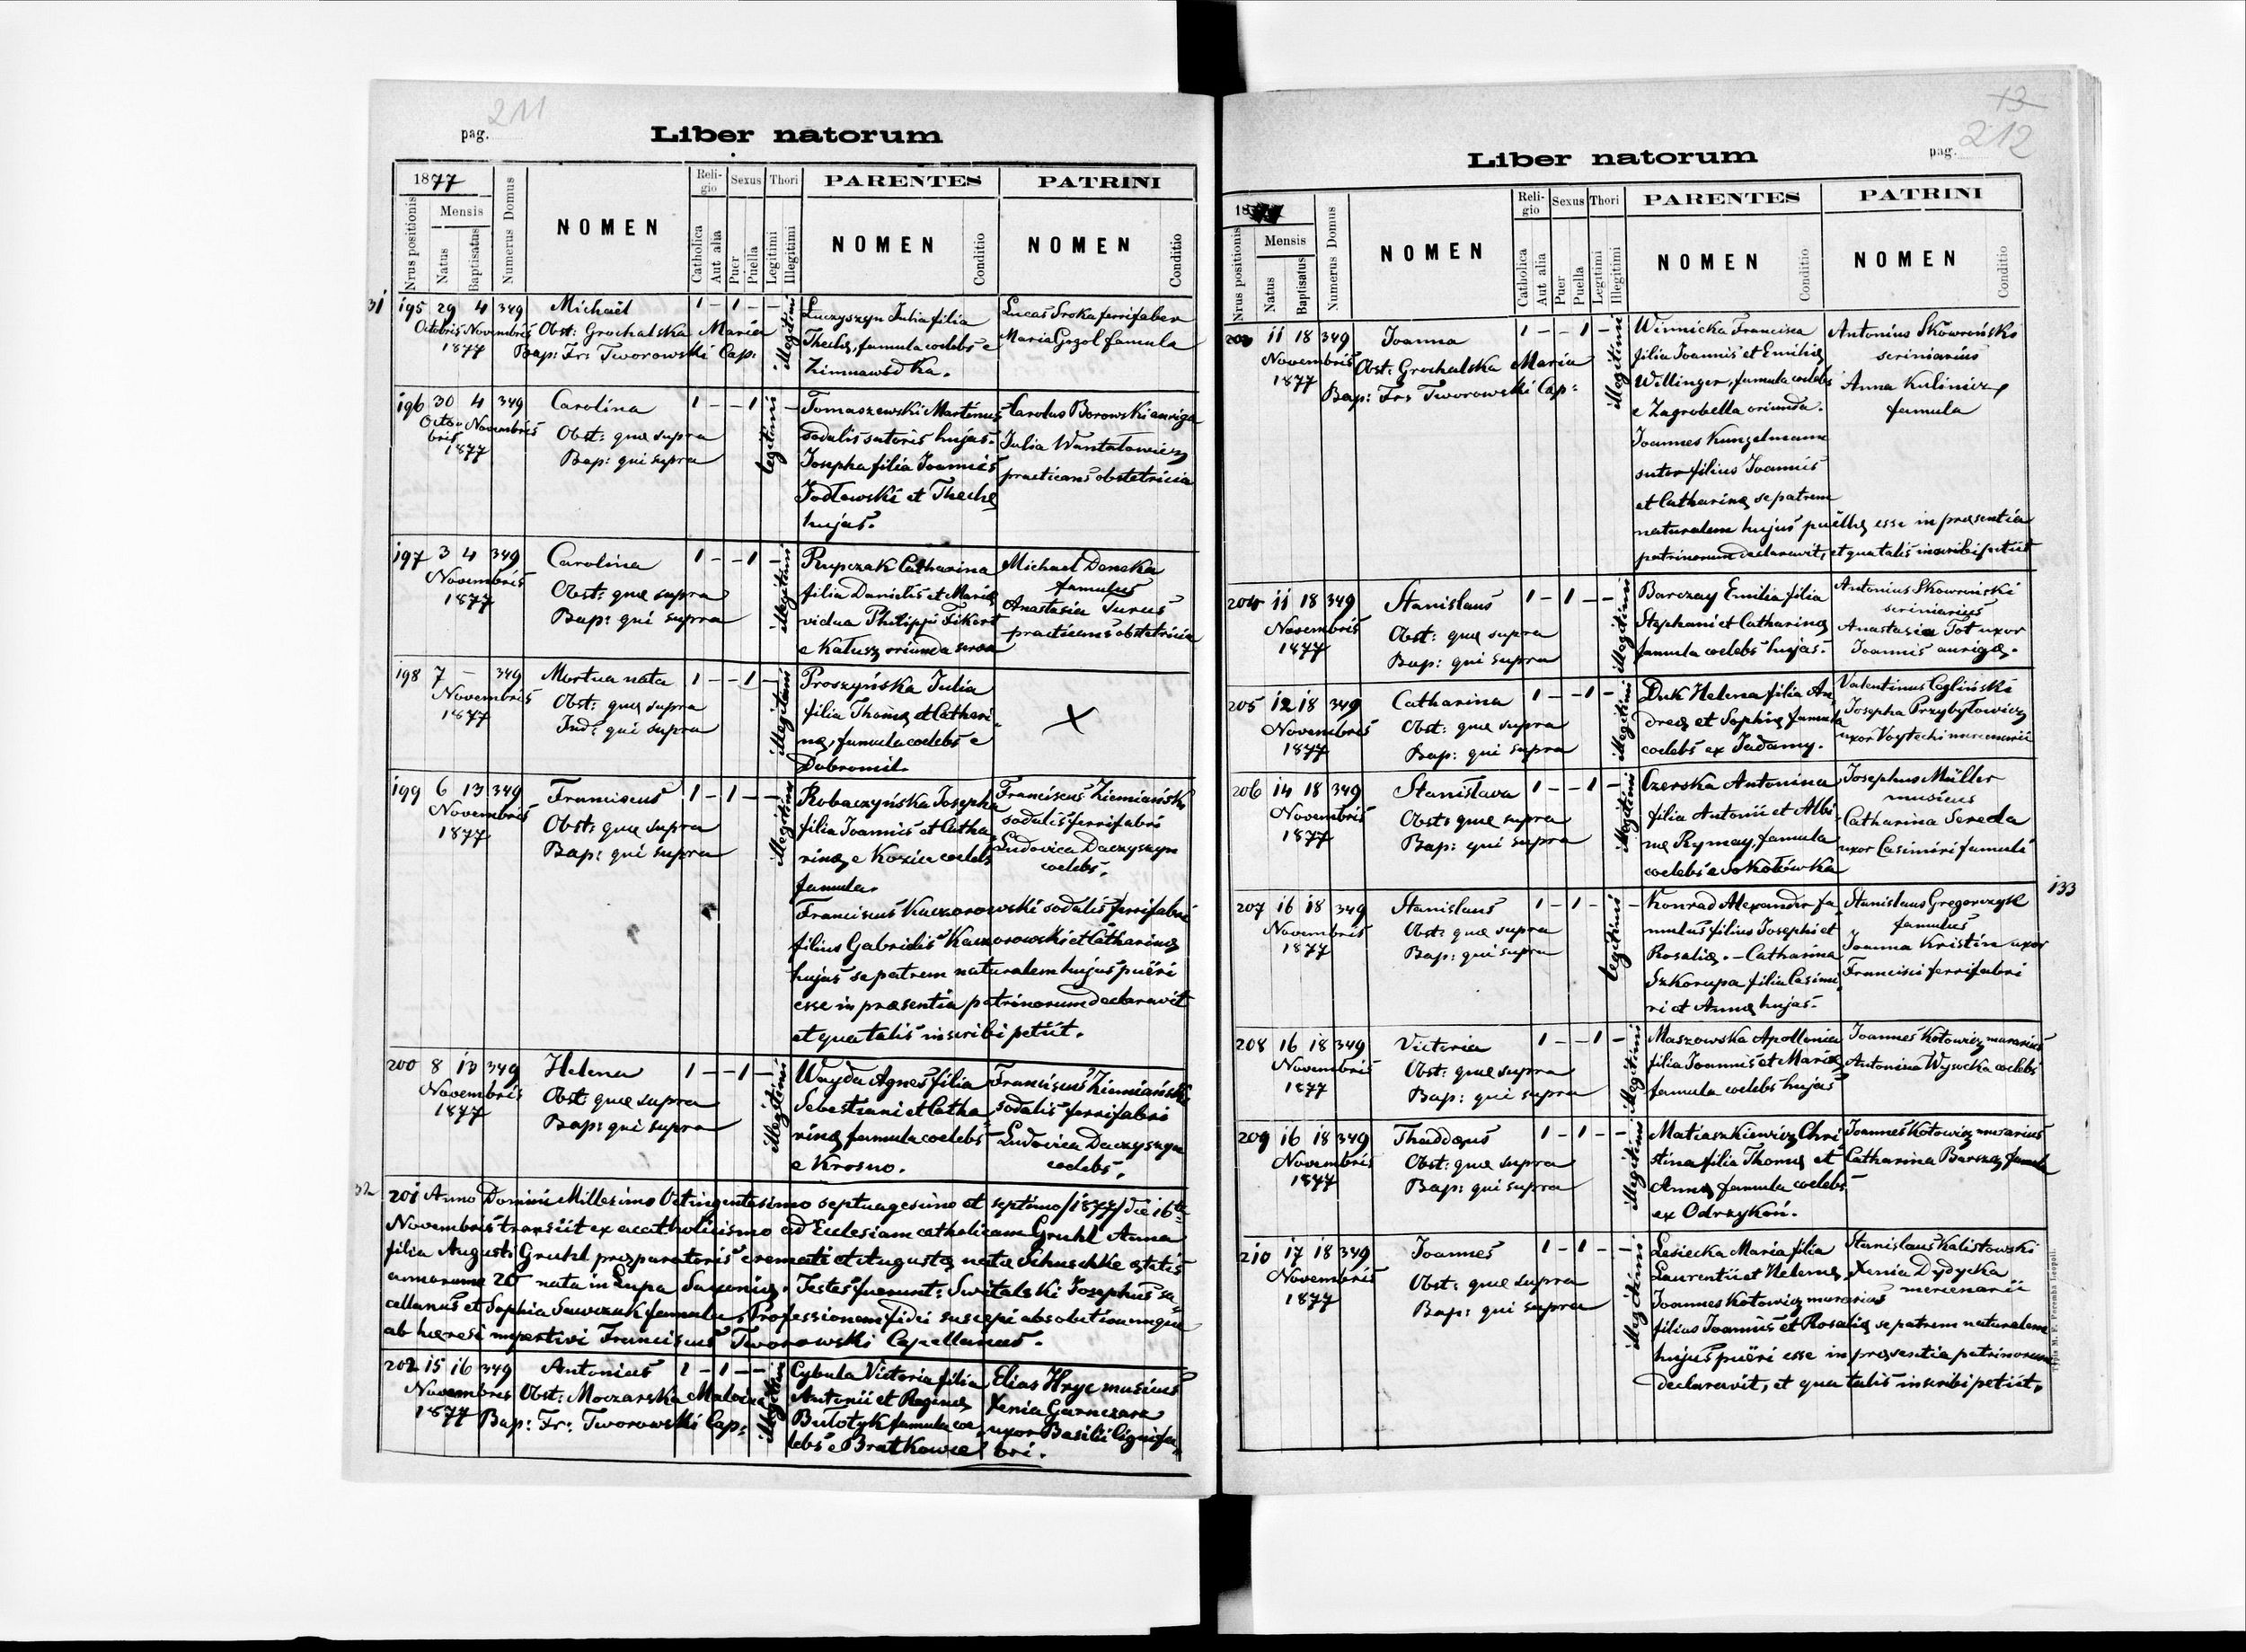 211
pag.
Liber natorum
1877
Nrus positionis
Mensis
Natus
Baptisatus
Numerus Domus
NOMEN
Religio
Catholica
Aut alia
Sexus
Puer
Puella
Thori
Legitimi
Illegitimi
PARENTES
NOMEN
Conditio
PATRINI
NOMEN
Conditio
31
195 29 4 349 Michaël 1 - 1 - -
Octobris Novembris Obst: Grochalska Maria
1877 Bap: Fr: Tworowski Cap:
illegitimi
Luczyszyn Julia filia
Theclę, famula coelebs e
Zimnawódka.
Lucas Sroka ferrifaber
Maria Gozol famula
196 30 4 349 Carolina 1 - - 1 -
Octobris Novembris Obst: quæ supra
1877 Bap: qui supra
legitimi
Tomaszewski Martinus
sodalis sutoris hujas.
Josepha filia Joannis
Jodłowski et Theclę
hujas.
Carolus Borowski auriga
Julia Wantałowicz
practicans obstetricia
197 3 4 349 Carolina 1 - - 1 -
Novembris Obst: quæ supra
1877 Bap: qui supra
illegitimi
Rupczak Catharina
filia Danielis et Marię
vidua Philippi Fikert
e Kałusz oriunda
Michael Denska
famulus
Anastasia Surus
practicans obstetricia
198 7 - 349 Mortua nata 1 - - 1 -
Novembris Obst: quæ supra
1877 Ind: qui supra
illegitimi
Proszyńska Julia
filia Thomę et Cathari-
nę, famula coelebs e
Dobromil.
X
199 6 13 349 Franciscus 1 - 1 - -
Novembris Obst: quæ supra
1877 Bap: qui supra
illegitimi
Robaczyńska Josepha
filia Joannis et Catha
rinę e Kozice coelebs
famula.
Franciscus Kaczorowski sodalis ferrifabri
filius Gabrielis Kaczorowski et Catharinę
hujas se patrem naturalem hujus puëri
esse in præsentia patrinorum declaravit
et qua talis inscribi petiit.
Franciscus Ziemiański
sodalis ferrifabri
Ludovica Daczyszyn
coelebs.
200 8 13 349 Helena 1 - - 1 -
Novembris Obst quæ supra
1877 Bap: qui supra
illegitimi
Wayda Agnes filia
Sebestiani et Catha
rinę famula coelebs
e Krosno.
Franciscus Ziemiański
sodalis ferrifabri
Ludovica Daczyszyn
coelebs.
32
201 Anno Domini Millesimo Octingentesimo septuagesimo et septimo /1877/ die 16ta
Novembris transiit ex acatholicismo ad Ecclesiam catholicam Gruhl Anna
filia Augusti Gruhl præparatoris et Augustę nata Schuschke ętatis
annorum 20 nata in Lupa Saxonię. Testes fuerunt: Switalski Josephus sa-
cellanus et Sophia Sawczuk famula, Professionem fidei suscepi absolutionemque
ab hæresi impertivi Franciscus Tworowski Capellanus.
202 15 16 349 Antonius 1 - 1 - -
Novembris Obst: Moczarska
1877 Bap: Fr: Tworowski Cap:
illegitimi
Cybula Victoria filia
Antonii et Reginę
Bułotyk famula coe-
lebs e Bratkowce
Elias Hryc musicus
Xenia Garnczarz
uxor Basilii lignifa-
bri.
13
212
pag.
Liber natorum
Nrus positionis
Mensis
Natus
Baptisatus
Numerus Domus
NOMEN
Religio
Catholica
Aut alia
Sexus
Puer
Puella
Thori
Legitimi
Illegitimi
PARENTES
NOMEN
Conditio
PATRINI
NOMEN
Conditio
203 11 18 349 Joanna 1 - - 1 -
Novembris Obst: Grochalska Maria
1877 Bap: Fr: Tworowski Cap:
illegitimi
Winnicka Francisca
filia Joannis et Emilię
Willinger, famula coelebs
e Zagrobella oriunda.
Joannes Kungelmann
sutor filius Joannis
et Catharinę se patrem
naturalem hujus puëllę esse in præsentia
patrinorum declaravit, et qua talis inscribi petiit
Antonius Skowroński
scriniarius
Anna Kulinicz
famula
204 11 18 349 Stanislaus 1 - 1 - -
Novembris Obst: quæ supra
1877 Bap: qui supra
illegitimi
Barczay Emilia filia
Stephani et Catharinę
famula coelebs hujas.
Antonius Skowroński
scriniarius
Anastasia Tot uxor
Joannis aurigæ.
205 12 18 349 Catharina 1 - - 1 -
Novembris Obst: quæ supra
1877 Bap: qui supra
illegitimi
Duk Helena filia An
dreę et Sophię famula
coelebs ex Jadamy.
Valentinus Cegliński
Josepha Przybyłowicz
uxor Voytechi mercenarii
206 14 18 349 Stanisłava 1 - - 1 -
Novembris Obst: quæ supra
1877 Bap: qui supra
illegitimi
Czerska Antonina
filia Antonii et Albi-
nę Rymay, famula
coelebs e Sokołówka
Josephus Müller
musicus
Catharina Sereda
uxor Casimiri famuli
133
207 16 18 349 Stanislaus 1 - 1 - -
Novembris Obst: quæ supra
1877 Bap: qui supra
legitimi
Konrad Alexander fa
mulus filius Josephi et
Rosalię. - Catharina
Szkorupa filia Casimi
ri et Annę hujas.
Stanislaus Gregorczyk
famulus
Joanna Kristin uxor
Francisci ferrifabri
208 16 18 349 Victoria 1 - - 1 -
Novembris Obst: quæ supra
1877 Bap: qui supra
illegitimi
Maszowska Apollonia
filia Joannis et Marię
famula coelebs hujas
Joannes Kotowicz murarius
Antonina Wysocka coelebs
209 16 18 349 Thaddæus 1 - 1 - -
Novembris Obst: quæ supra
1877 Bap: qui supra
illegitimi
Matiaszkiewicz Chri
stina filia Thomę et
Annę famula coelebs
ex Odrzykoń.
Joannes Kotowicz murarius
Catharina Barszcz famula
210 17 18 349 Joannes 1 - 1 - -
Novembris Obst: quæ supra
1877 Bap: qui supra
illegitimi
Lesiecka Maria filia
Laurentii et Helenę,
Joannes Kotowicz murarius
filius Joannis et Rosalię se patrem naturalem
hujus puëri esse in præsentia patrinorum
declaravit, et qua talis inscribi petiit.
Stanislaus Kalistowski
Xenia Dydycka
mercenarii